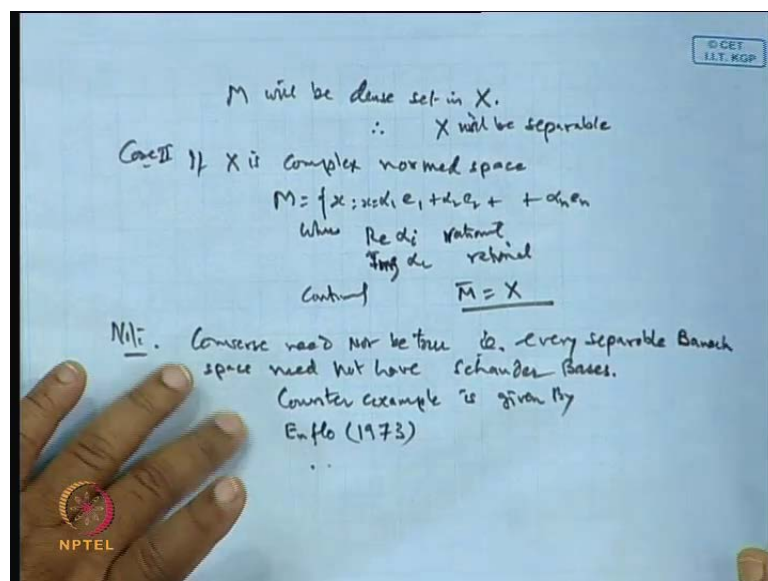 © CET
I.I.T. KGP
M will be dense set in X.
∴ X will be separable
Case II If X is complex normed space
M = {x : x = α₁ e₁ + α₂ e₂ + + αₙ eₙ
Where Re αᵢ rational
Img αᵢ rational
M̄ = X
Note: Converse need Not be true ie. every separable Banach
space need not have Schauder Bases.
Counter example is given By
Enflo (1973)
NPTEL